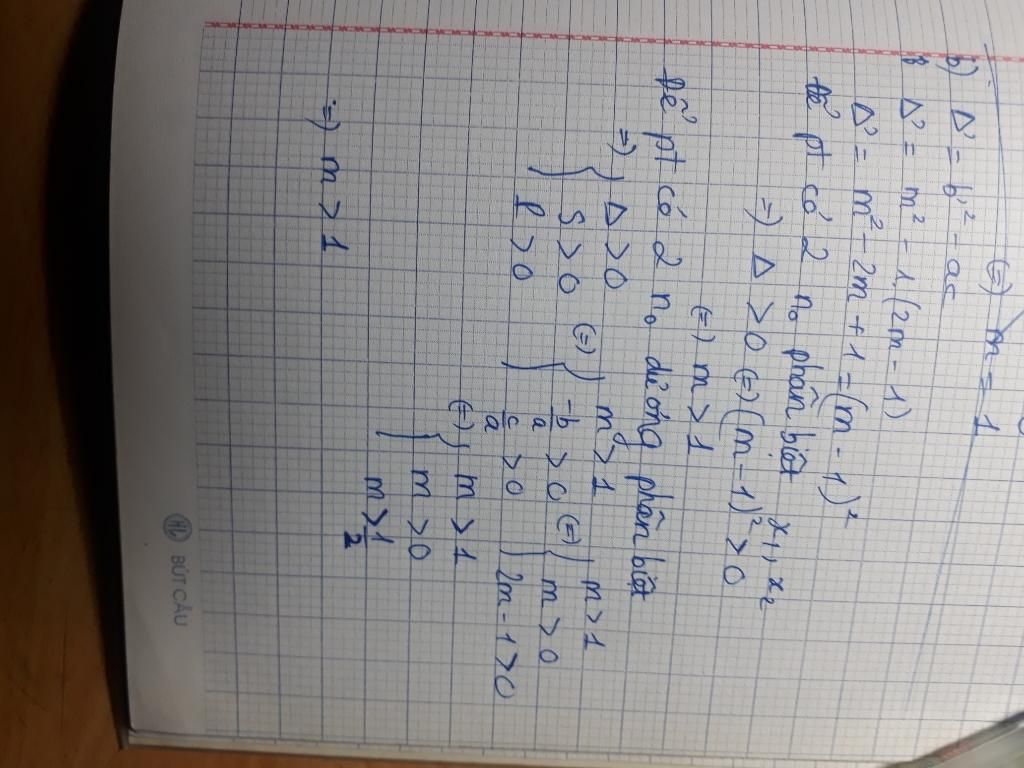 (=) m = 1
b) Δ' = b'² - ac
Δ' = m² - 1.(2m - 1)
Δ' = m² - 2m + 1 = (m - 1)²
để pt có 2 n₀ phân biệt x₁, x₂
=) Δ > 0 (=) (m - 1)² > 0
(=) m > 1
để pt có 2 n₀ dương phân biệt
=) { Δ > 0 (=) { m > 1 (=) { m > 1
S > 0 -b/a > 0 m > 0
P > 0 c/a > 0 2m - 1 > 0
(=) { m > 1
m > 0
m > 1/2
=) m > 1
BÚT CÂU